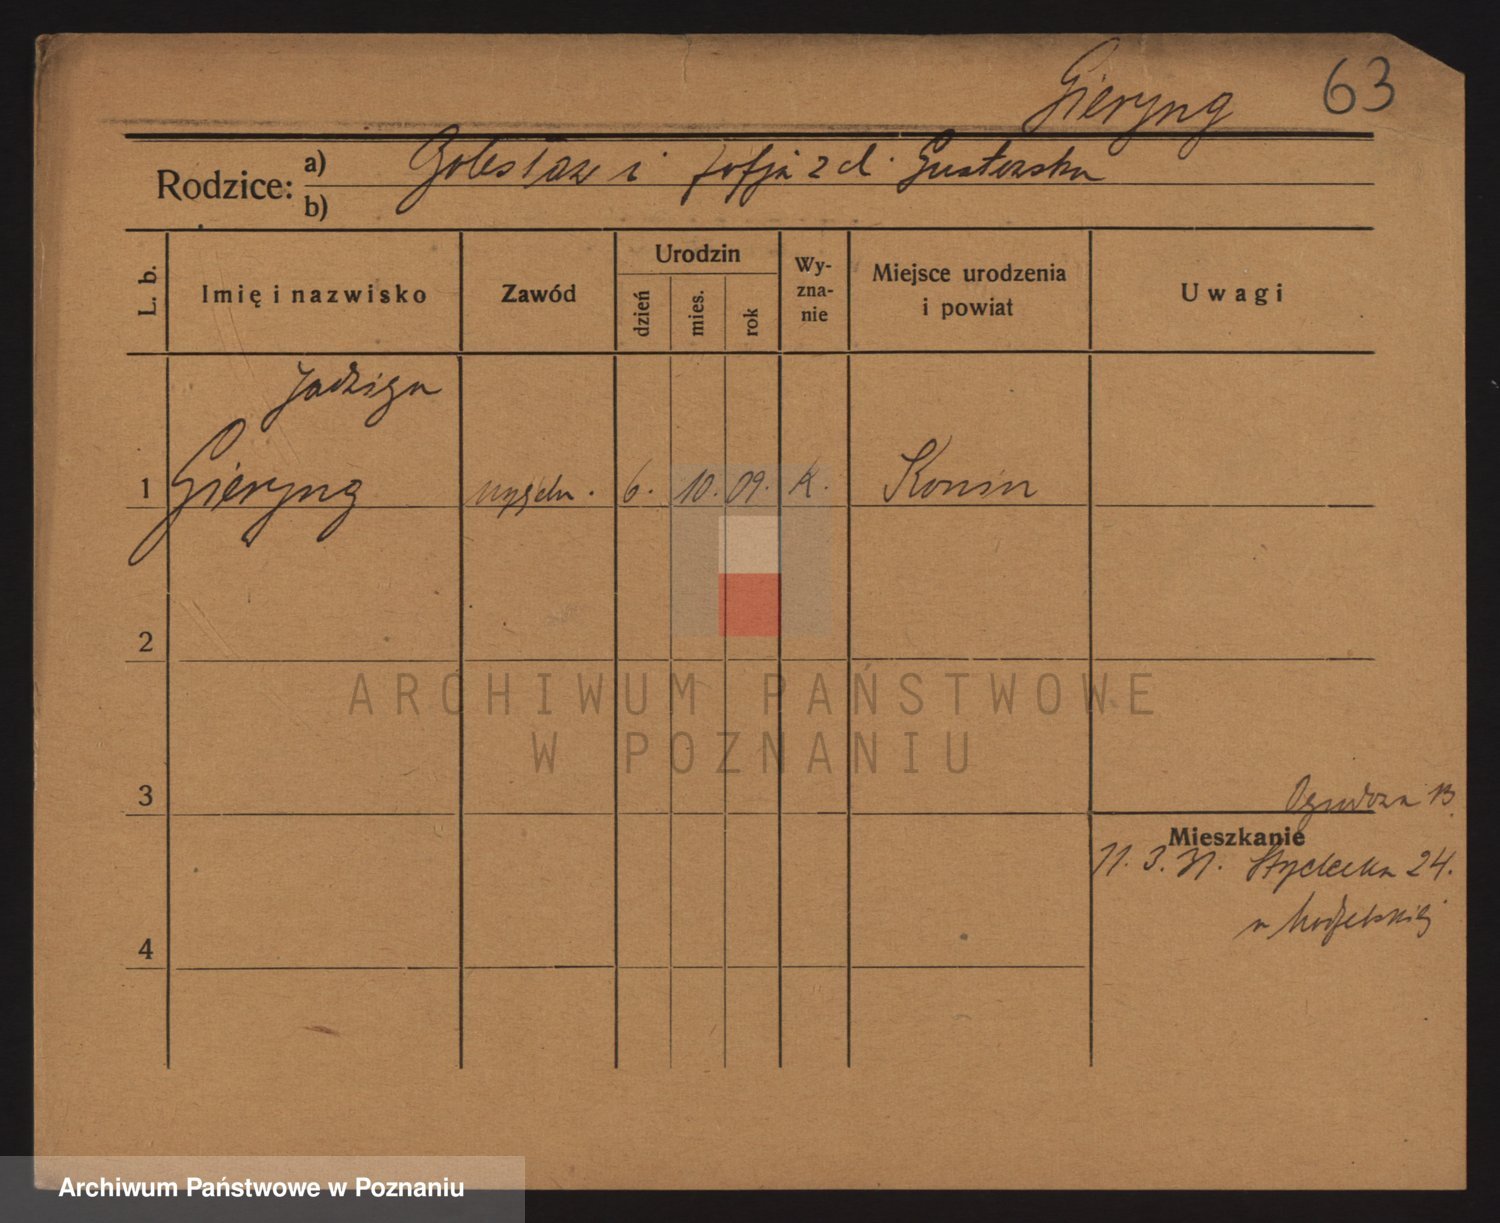 Gieryng 63
Rodzice: a) Bolesław i Zofja z d.
b)
L. b.
Imię i nazwisko
Zawód
Urodzin
dzień
mies.
rok
Wy-
zna-
nie
Miejsce urodzenia
i powiat
Uwagi
Jadwiga
1 Gieryng 6. 10. 09. K. Konin
2
ARCHIWUM PAŃSTWOWE
W POZNANIU
3
Mieszkanie
11. 3. 31. 24.
4
Archiwum Państwowe w Poznaniu